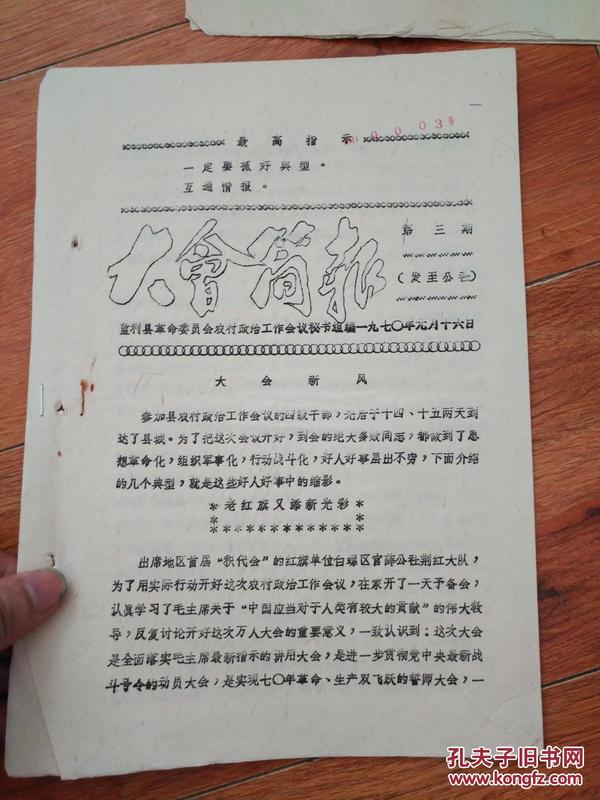 00003号
最高指示
一定要抓好典型。
互通情报。
大会简报
第三期
(发至公社)
监利县革命委员会农村政治工作会议秘书组编一九七〇年元月十六日
大会新风
参加县农村政治工作会议的四级干部，先后于十四、十五两天到
达了县城。为了把这次会议开好，到会的绝大多数同志，都做到了思
想革命化，组织军事化，行动战斗化，好人好事层出不穷，下面介绍
的几个典型，就是这些好人好事中的缩影。
* 老红旗又添新光彩 *
* * * * * * * * * * * *
出席地区首届“积代会”的红旗单位白螺区官薛公社荆红大队，
为了用实际行动开好这次农村政治工作会议，在家开了一天予备会，
认真学习了毛主席关于“中国应当对于人类有较大的贡献”的伟大教
导，反复讨论开好这次万人大会的重要意义，一致认识到：这次大会
是全面落实毛主席最新指示的讲用大会，是进一步贯彻党中央最新战
斗号令的动员大会，是实现七〇年革命、生产双飞跃的誓师大会，一
孔夫子旧书网
www.kongfz.com